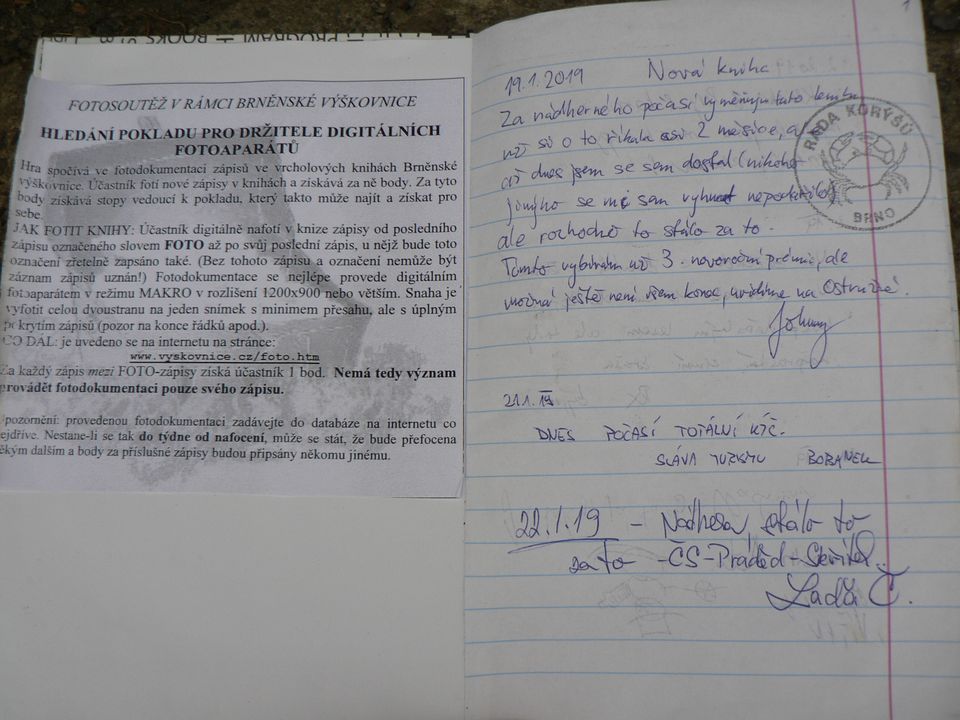 PROGRAM BOOKS
FOTOSOUTĚŽ V RÁMCI BRNĚNSKÉ VÝŠKOVNICE
HLEDÁNÍ POKLADU PRO DRŽITELE DIGITÁLNÍCH
FOTOAPARÁTŮ
Hra spočívá ve fotodokumentaci zápisů ve vrcholových knihách Brněnské
výškovnice. Účastník fotí nové zápisy v knihách a získává za ně body. Za tyto
body získává stopy vedoucí k pokladu, který takto může najít a získat pro
sebe.
JAK FOTIT KNIHY: Účastník digitálně nafotí v knize zápisy od posledního
zápisu označeného slovem FOTO až po svůj poslední zápis, u nějž bude toto
označení zřetelně zapsáno také. (Bez tohoto zápisu a označení nemůže být
záznam zápisů uznán!) Fotodokumentace se nejlépe provede digitálním
fotoaparátem v režimu MAKRO v rozlišení 1200x900 nebo větším. Snaha je
vyfotit celou dvoustranu na jeden snímek s minimem přesahu, ale s úplným
pokrytím zápisů (pozor na konce řádků apod.).
CO DÁL: je uvedeno se na internetu na stránce:
www.vyskovnice.cz/foto.htm
Za každý zápis mezi FOTO-zápisy získá účastník 1 bod. Nemá tedy význam
provádět fotodokumentaci pouze svého zápisu.
pozornění: provedenou fotodokumentaci zadávejte do databáze na internetu co
ejdříve. Nestane-li se tak do týdne od nafocení, může se stát, že bude přefocena
ěkým dalším a body za příslušné zápisy budou připsány někomu jinému.
1
19.1.2019 Nová kniha
Za nádherného počasí vyměňuji tuto
už si o to říkala asi 2 měsíce, a
až dnes jsem se sem dostal (nikoho
jinýho se mi sem nepodařilo)
ale rozhodno to stálo za to.
Tímto vybírám už 3. novoroční prémii, ale
možná ještě není všem konec, uvidíme na Ostružné.
Johnny
RADA KORÝŠŮ
BRNO
21.1.19
DNES POČASÍ TOTÁLNÍ KÝČ.
SLÁVA TURISMU BOBANEK
22.1.19 - Nádhera, stálo to
za to -ČS-Praděd-
Laďa Č.